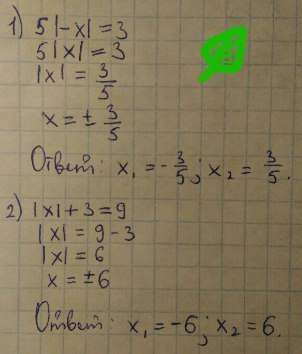 1) 5|-x|=3
5|x|=3
|x| = 3/5
x = ± 3/5
Ответ: x₁ = -3/5; x₂ = 3/5.
2) |x|+3=9
|x| = 9-3
|x| = 6
x = ±6
Ответ: x₁ = -6; x₂ = 6.